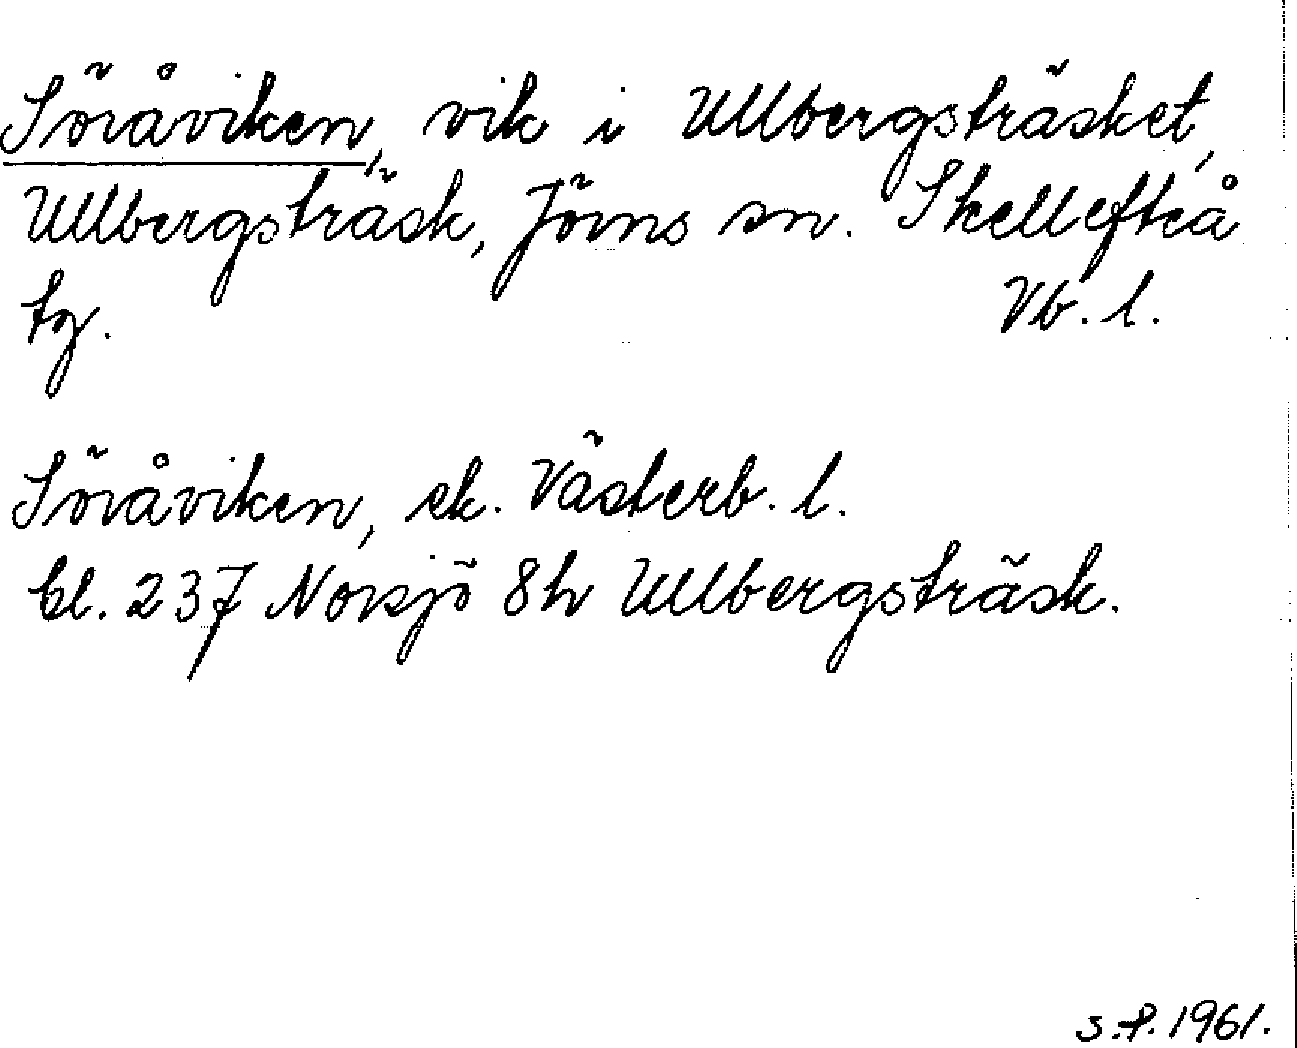 Söråviken, vik i Ullbergsträsket,
Ullbergsträsk, Jörns sn. Skellefteå
tg. Vb. l.
Söråviken, ek. Västerb. l.
bl. 237 Norsjö 8h Ullbergsträsk.
S.P. 1961.